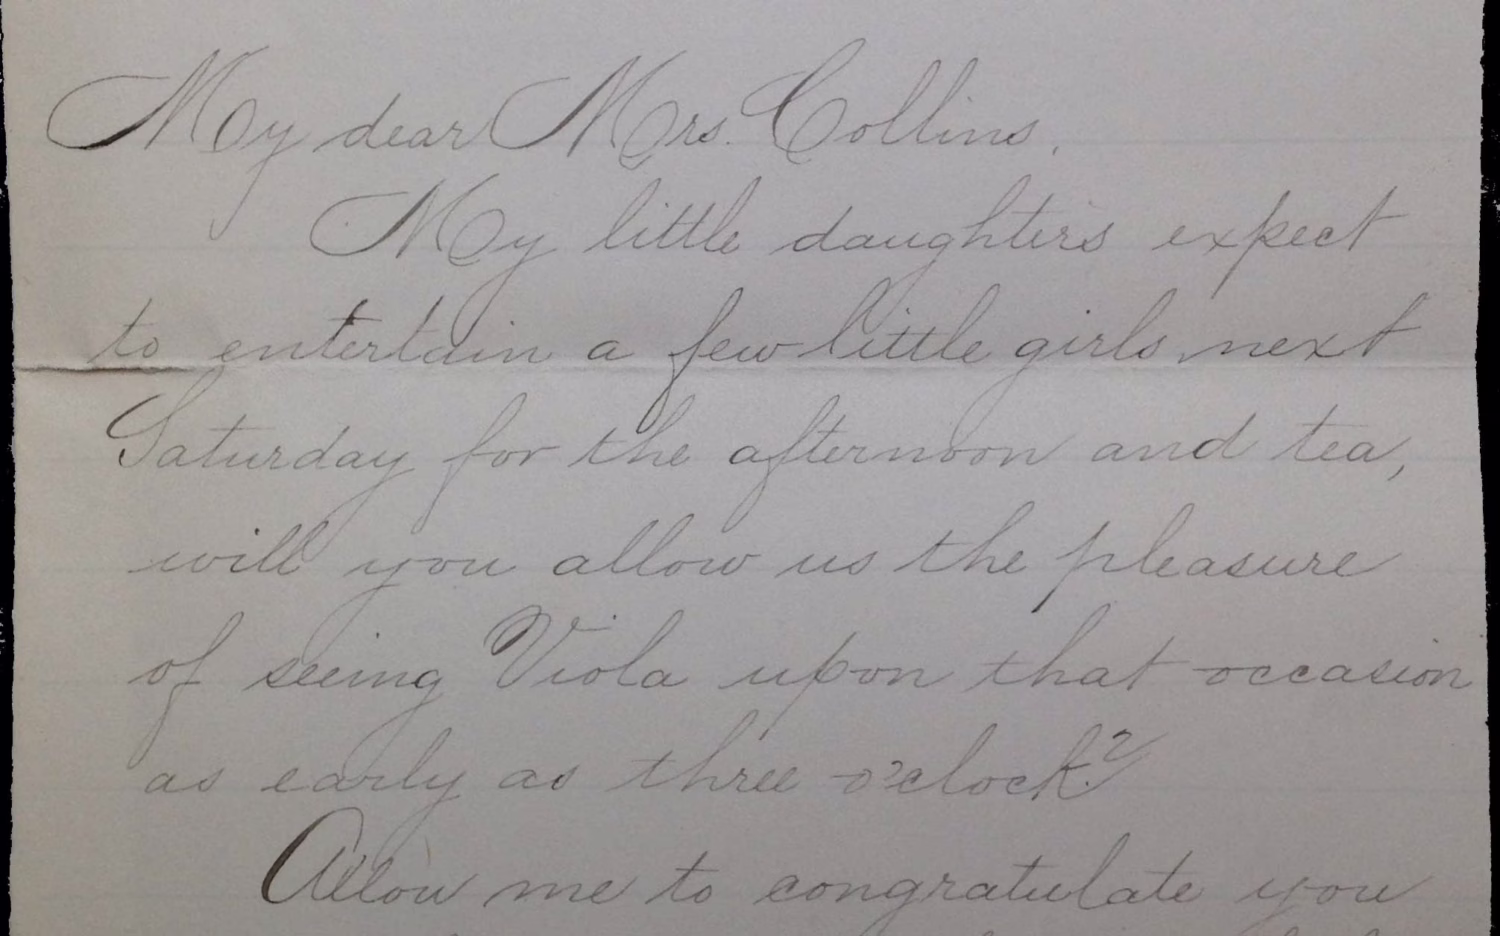 My dear Mrs. Collins,
My little daughters expect
to entertain a few little girls next
Saturday for the afternoon and tea,
will you allow us the pleasure
of seeing Viola upon that occasion
as early as three o'clock?
Allow me to congratulate you